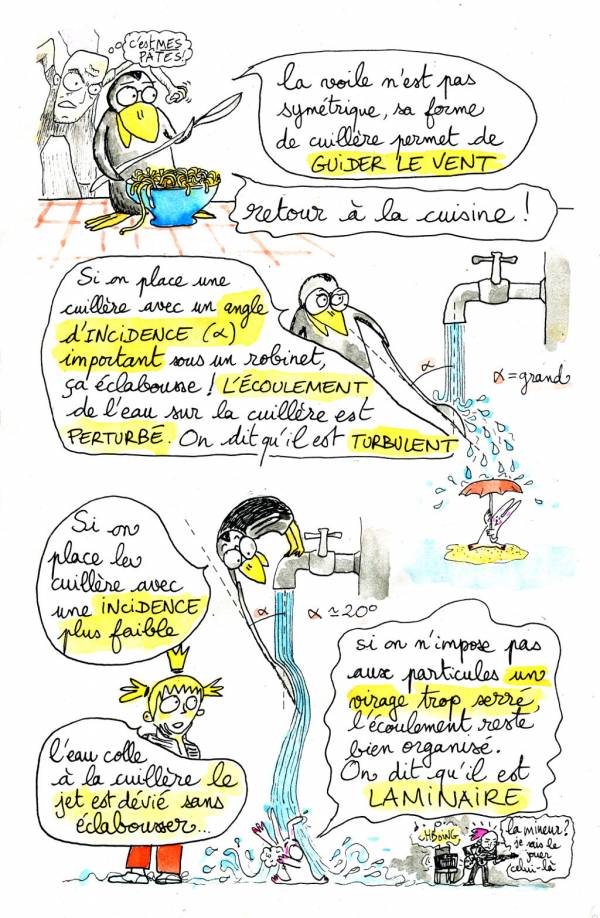 c'est MES
PÂTES
la voile n'est pas
symétrique, sa forme
de cuillère permet de
GUIDER LE VENT
retour à la cuisine !
Si on place une
cuillère avec un angle
d'INCIDENCE (α)
important sous un robinet,
ça éclabousse ! L'ÉCOULEMENT
de l'eau sur la cuillère est
PERTURBÉ. On dit qu'il est TURBULENT
α
α = grand
Si on
place la
cuillère avec
une INCIDENCE
plus faible
α
α ≃ 20°
l'eau colle
à la cuillère le
jet est dévié sans
éclabousser...
si on n'impose pas
aux particules un
virage trop serré,
l'écoulement reste
bien organisé.
On dit qu'il est
LAMINAIRE
la mineur ?
je sais le
jouer
celui-là